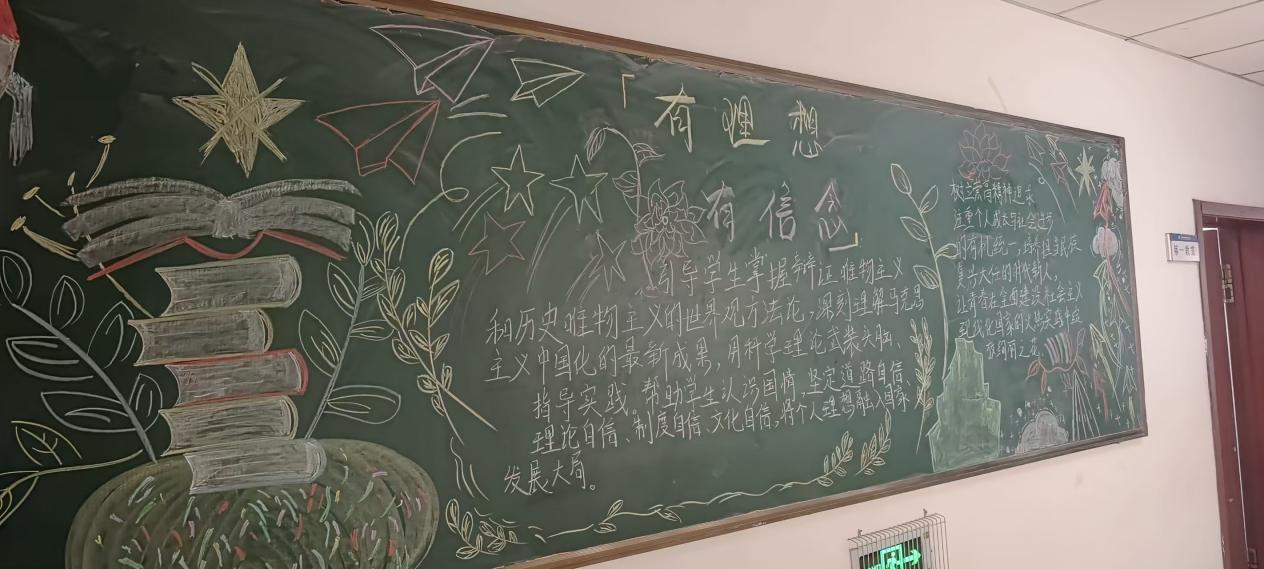 「有理想
有信念」
引导学生掌握辩证唯物主义
和历史唯物主义的世界观方法论，深刻理解马克思
主义中国化的最新成果，用科学理论武装头脑、
指导实践。帮助学生认识国情，坚定道路自信、
理论自信、制度自信、文化自信，将个人理想融入国家
发展大局。
树立崇高精神追求
注重个人成长与社会进步
的有机统一，培养担当民族
复兴大任的时代新人，
让青春在全面建设社会主义
现代化国家的火热实践中绽
放绚丽之花。
第一教室